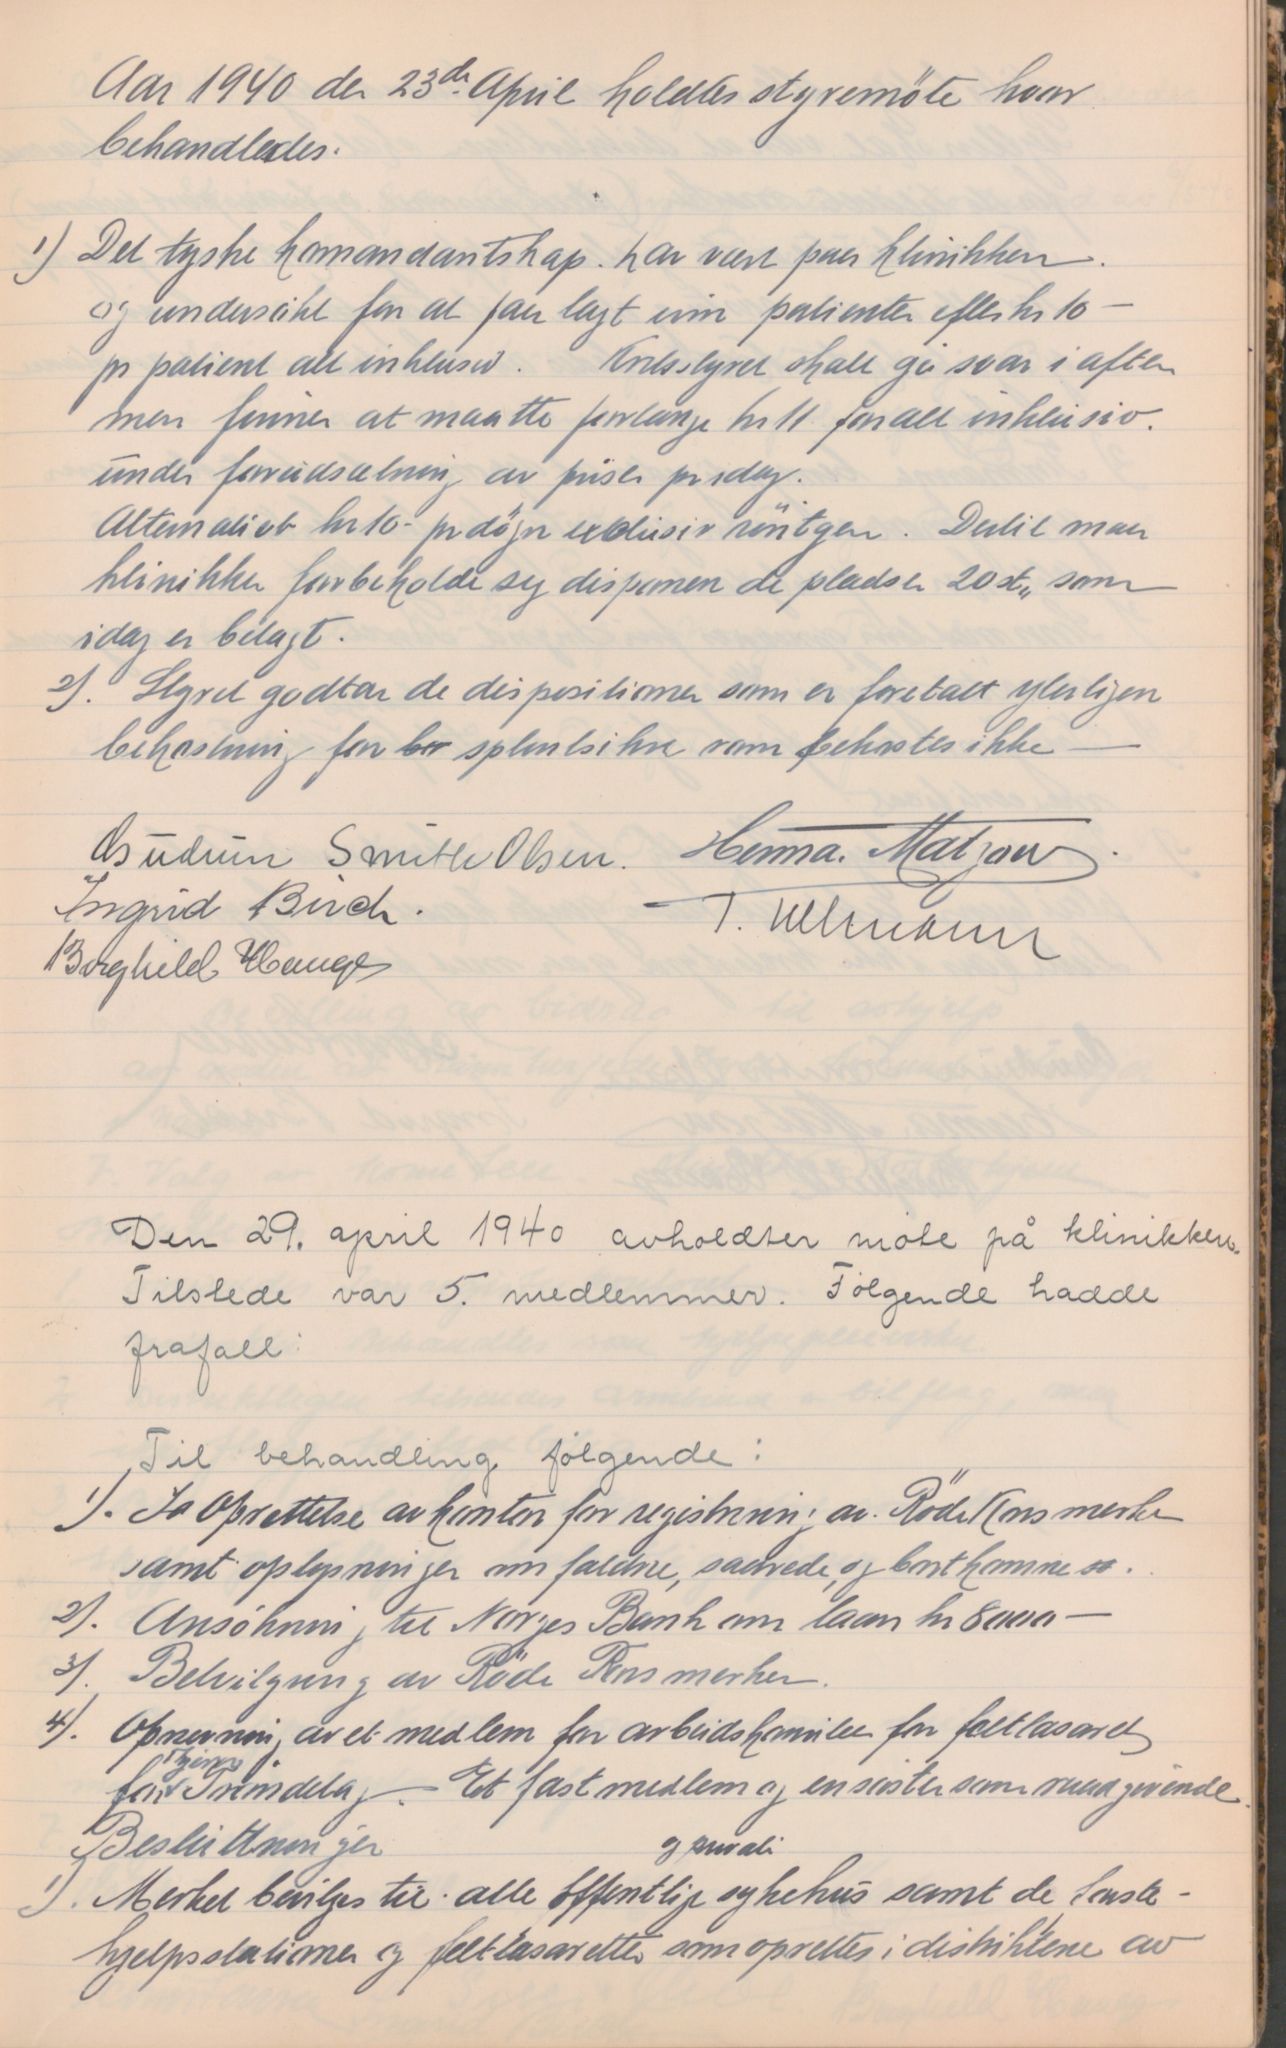 Aar 1940 den 23de April holdtes styremöte hvor
behandledes.
1) Det tyske komandantskap. har vært paa klinikken.
og undersökt for at faa lagt inn patienter efter kr 10 —
pr patient alt inklusiv. Kretsstyret skal gi svar i aften
men finner at maatte forlange kr 11 for alt inklusiv.
under forudsætning av priser pr idag.
Alternativt kr 10- pr dögn exclusiv röntgen. Dertil maa
klinikken forbeholde seg disponere de pladser 20 st. som
idag er belagt.
2). Styret godtar de dispositioner som er foretatt yterligere
bekostning for splintsikre rom bekostes ikke —
Gudrun Smith Olsen. Henna. Matzow.
Ingrid Birch. T. Ullmann
Borghild Hauges
Den 29. april 1940 avholdtes möte på klinikken.
Tilstede var 5. medlemmer. Følgende hadde
frafall:
Til behandling følgende:
1). Oprettelse av kontor for registrering av. Röde Kors merke
samt oplysninger om faldne, saarede, og bortkomne
2). Ansökning til Norges Bank om laan kr 8000 —
3). Bekvilgning av Röde Kors merker.
4). Opnevning av et medlem for arbeidskomiteen for feltlasaret
for Tröndelag. Et fast medlem og en søster som raadgivende.
Beslutninger
og privati
1). Merket bevilges til alle offentlige sykehus samt de förste-
hjelpsstationer og feltlasaretter som oprettes i distriktene av